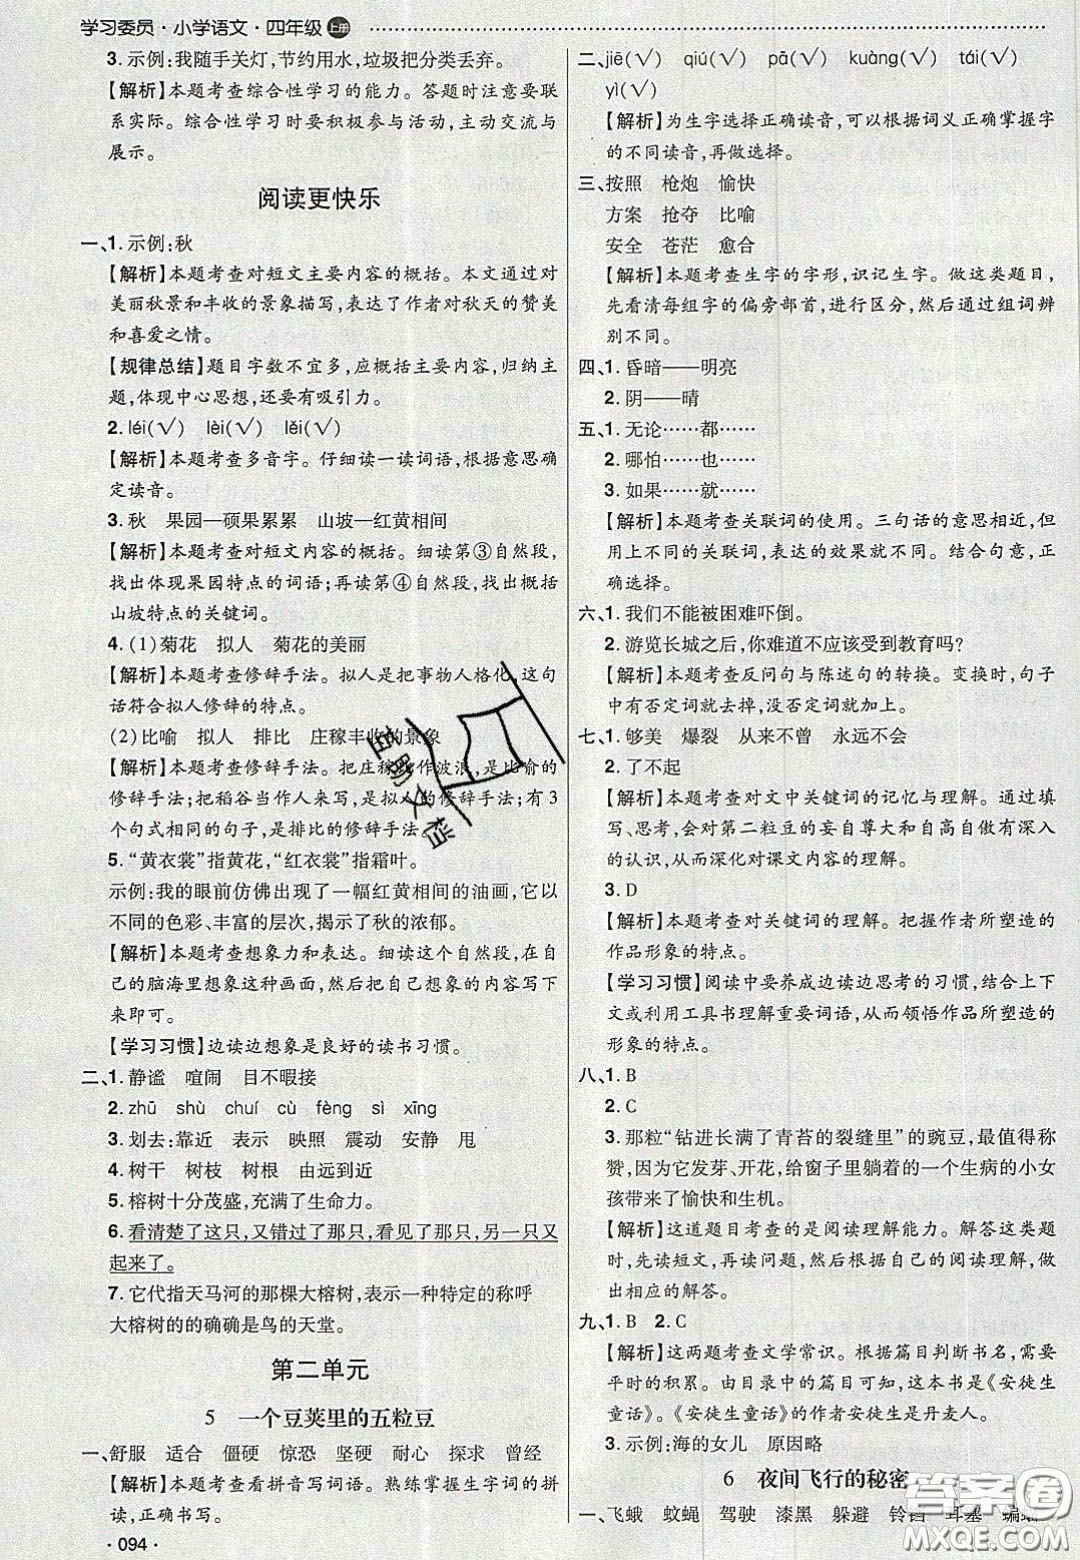 学习委员·小学语文·四年级 上册
3. 示例:我随手关灯,节约用水,垃圾把分类丢弃。
【解析】本题考查综合性学习的能力。答题时注意要联
系实际。综合性学习时要积极参与活动,主动交流与
展示。
阅读更快乐
一、1. 示例:秋
【解析】本题考查对短文主要内容的概括。本文通过对
美丽秋景和丰收的景象描写,表达了作者对秋天的赞美
和喜爱之情。
【规律总结】题目字数不宜多,应概括主要内容,归纳主
题,体现中心思想,还要有吸引力。
2. léi(√) lèi(√) lěi(√)
【解析】本题考查多音字。仔细读一读词语,根据意思确
定读音。
3. 秋 果园—硕果累累 山坡—红黄相间
【解析】本题考查对短文内容的概括。细读第③自然段,
找出体现果园特点的词语;再读第④自然段,找出概括
山坡特点的关键词。
4. (1)菊花 拟人 菊花的美丽
【解析】本题考查修辞手法。拟人是把事物人格化,这句
话符合拟人修辞的特点。
(2)比喻 拟人 排比 庄稼丰收的景象
【解析】本题考查修辞手法。把庄稼比作波浪,是比喻的
修辞手法;把稻谷当作人来写,是拟人的修辞手法;有3
个句式相同的句子,是排比的修辞手法。
5. “黄衣裳”指黄花,“红衣裳”指霜叶。
示例:我的眼前仿佛出现了一幅红黄相间的油画,它以
不同的色彩、丰富的层次,揭示了秋的浓郁。
【解析】本题考查想象力和表达。细读这个自然段,在自
己的脑海里想象这种画面,然后把自己想象的内容写下
来即可。
【学习习惯】边读边想象是良好的读书习惯。
二、1. 静谧 喧闹 目不暇接
2. zhū shù chuí cù fèng sì xīng
3. 划去:靠近 表示 映照 震动 安静 甩
4. 树干 树枝 树根 由远到近
5. 榕树十分茂盛,充满了生命力。
6. 看清楚了这只,又错过了那只,看见了那只,另一只又
起来了。
7. 它代指天马河的那棵大榕树,表示一种特定的称呼
大榕树的的确确是鸟的天堂。
第二单元
5 一个豆荚里的五粒豆
一、舒服 适合 僵硬 惊恐 坚硬 耐心 探求 曾经
【解析】本题考查看拼音写词语。熟练掌握生字词的拼
读,正确书写。
·094·
二、jiē(√) qiú(√) pā(√) kuàng(√) tái(√)
yì(√)
【解析】为生字选择正确读音,可以根据词义正确掌握字
的不同读音,再做选择。
三、按照 枪炮 愉快
方案 抢夺 比喻
安全 苍茫 愈合
【解析】本题考查生字的字形,识记生字。做这类题目,
先看清每组字的偏旁部首,进行区分,然后通过组词辨
别不同。
四、1. 昏暗——明亮
2. 阴——晴
五、1. 无论……都……
2. 哪怕……也……
3. 如果……就……
【解析】本题考查关联词的使用。三句话的意思相近,但
用上不同的关联词,表达的效果就不同。结合句意,正
确选择。
六、1. 我们不能被困难吓倒。
2. 游览长城之后,你难道不应该受到教育吗?
【解析】本题考查反问句与陈述句的转换。变换时,句子
中有否定词就去掉,没否定词就加上。
七、1. 够美 爆裂 从来不曾 永远不会
2. 了不起
【解析】本题考查对文中关键词的记忆与理解。通过填
写、思考,会对第二粒豆的妄自尊大和自高自傲有深入
的认识,从而深化对课文内容的理解。
3. D
【解析】本题考查对关键词的理解。把握作者所塑造的
作品形象的特点。
【学习习惯】阅读中要养成边读边思考的习惯,结合上下
文或利用工具书理解重要词语,从而领悟作品所塑造的
形象的特点。
八、1. B
2. C
3. 那粒“钻进长满了青苔的裂缝里”的豌豆,最值得称
赞,因为它发芽、开花,给窗子里躺着的一个生病的小女
孩带来了愉快和生机。
【解析】这道题目考查的是阅读理解能力。解答这类题
时,先读短文,再读问题,然后根据自己的阅读理解,做
出相应的解答。
九、1. B 2. C
【解析】这两题考查文学常识。根据篇目判断书名,需要
平时的积累。由目录中的篇目可知,这本书是《安徒生
童话》。《安徒生童话》的作者安徒生是丹麦人。
3. 示例:海的女儿 原因略
6 夜间飞行的秘密
一、飞蛾 蚊蝇 驾驶 漆黑 躲避 铃铛 耳塞 蝙蝠
答案圈
MXQE.COM